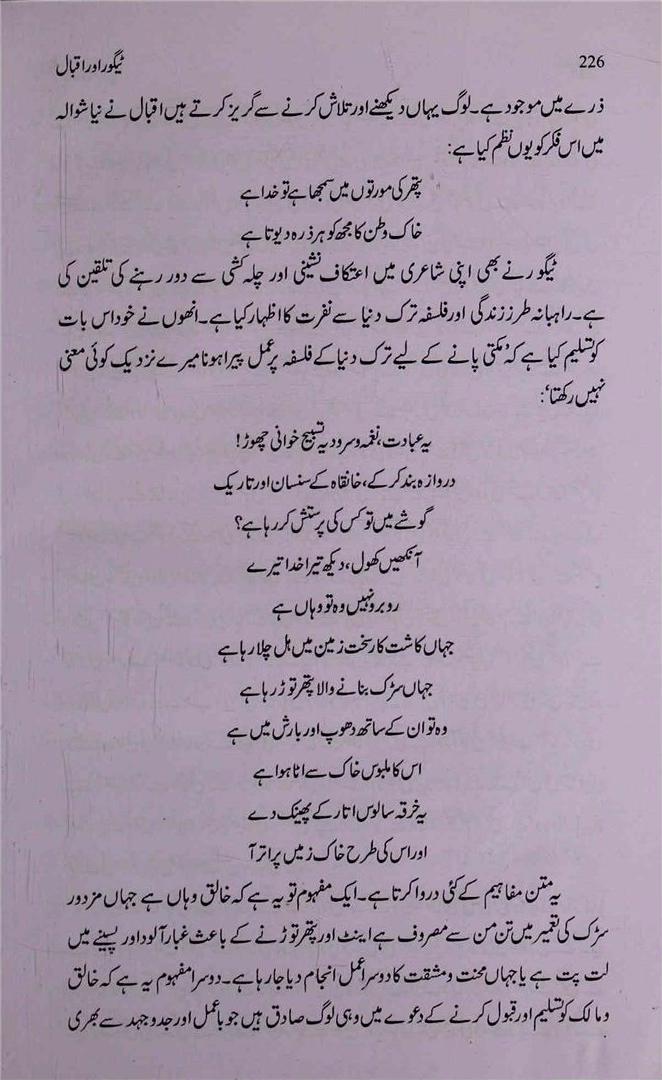 226
ٹیگور اور اقبال
ذرے میں موجود ہے۔ لوگ یہاں دیکھنے اور تلاش کرنے سے گریز کرتے ہیں اقبال نے نیا شوالہ
میں اس فکر کو یوں نظم کیا ہے:
پتھر کی مورتوں میں سمجھا ہے تو خدا ہے
خاک وطن کا مجھ کو ہر ذرہ دیوتا ہے
ٹیگور نے بھی اپنی شاعری میں اعتکاف نشینی اور چلہ کشی سے دور رہنے کی تلقین کی
ہے۔ راہبانہ طرز زندگی اور فلسفہ ترک دنیا سے نفرت کا اظہار کیا ہے۔ انھوں نے خود اس بات
کو تسلیم کیا ہے کہ ’مکتی پانے کے لیے ترک دنیا کے فلسفہ پر عمل پیرا ہونا میرے نزدیک کوئی معنی
نہیں رکھتا‘:
یہ عبادت، نغمہ و سرود یہ تسبیح خوانی چھوڑ!
دروازہ بند کر کے، خانقاہ کے سنسان اور تاریک
گوشے میں تو کس کی پرستش کر رہا ہے؟
آنکھیں کھول، دیکھ تیرا خدا تیرے
روبرو نہیں وہ تو وہاں ہے
جہاں کاشت کار سخت زمین میں ہل چلا رہا ہے
جہاں سڑک بنانے والا پتھر توڑ رہا ہے
وہ تو ان کے ساتھ دھوپ اور بارش میں ہے
اس کا ملبوس خاک سے اٹا ہوا ہے
یہ خرقہ سالوس اتار کے پھینک دے
اور اس کی طرح خاک زمیں پر اتر آ
یہ متن مفاہیم کے کئی در وا کرتا ہے۔ ایک مفہوم تو یہ ہے کہ خالق وہاں ہے جہاں مزدور
سڑک کی تعمیر میں تن من سے مصروف ہے اینٹ اور پتھر توڑنے کے باعث غبار آلود اور پسینے میں
لت پت ہے یا جہاں محنت و مشقت کا دوسرا عمل انجام دیا جا رہا ہے۔ دوسرا مفہوم یہ ہے کہ خالق
و مالک کو تسلیم اور قبول کرنے کے دعوے میں وہی لوگ صادق ہیں جو باعمل اور جدوجہد سے بھری